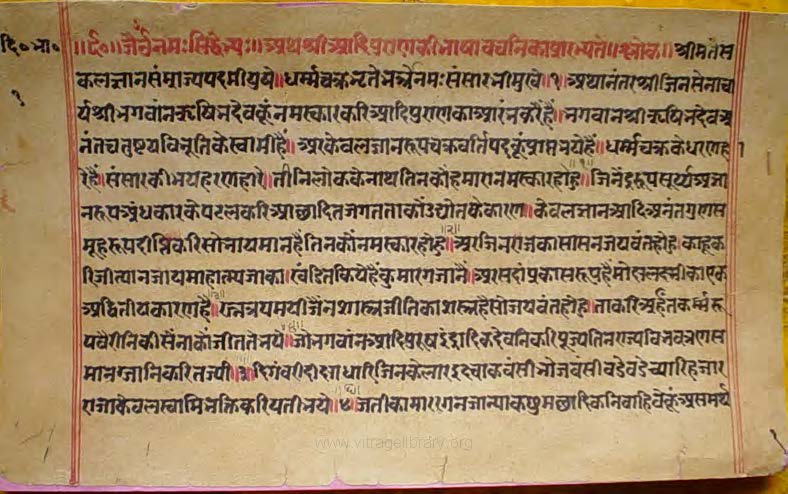 दि॰ भा॰
॥ र्द॰ ॥ ॐ नमः सिद्धेभ्यः ॥ अथ श्री आदिपुराण की भाषा वचनिका प्रारभ्यते ॥ श्लोक ॥ श्रीमते स
कलज्ञानसंम्राज्यपदमीयुषे ॥ धर्म्मचक्रभृते भर्त्रे नमः संसारभीमुषे ॥ १ ॥ अथानंतर श्री जिनसेनाचा
र्य श्री भगवांन ऋषिभदेव कूं नमस्कार करि आदिपुराण का आरंभ करै हैं ॥ भगवान श्री ऋषिभदेव अ
नंत चतुष्टय विभूति के स्वामी हैं ॥ अर केवलज्ञानरूप चक्रवर्तिपद कूं प्राप्त भये हैं ॥ धर्म्मचक्र के धारणह
रे हैं संसार की भय हरणहारे ॥ तीनि लोक के नाथ तिन कौं हमारा नमस्कार होहु ॥ जिनेंद्ररूप सूर्य्य अज्ञा
नरूप अंधकार के पटल करि आछादित जगत ता कौं उद्योत के कारण ॥ केवलज्ञान आदि अनंत गुण स
मूहरूप दीप्ति करि सोभायमान है तिन कौं नमस्कार होहु ॥ अर जिनराज का सासन जयवंत होहु काहू क
रि जीत्या न जाय माहात्म्य जाका ॥ खंडित किये हैं कुमारग जानैं ॥ अर सदां प्रकासरूप है मोक्षलक्ष्मी का एक
अद्वितीय कारण है ॥ रत्नत्रयमयी जैन शास्त्र जीति का शस्त्र है सो जयवंत होहु ॥ ता करि अर्हंत कर्म्मरू
प वैरीनि की सेंना कौं जीतते भये ॥ जो भगवांन आदिपुरुष इंद्रादिक देवनि करि पूज्य तिन राज्यविभव त्रण स
मान जानि करि तज्यौ ॥ ३ ॥ दिगंबरी दीक्षा धारि जिन के लार इक्ष्वाकवंसी भोजवंसी वडे वडे च्यारि हजार
राजा केवल स्वामिभक्ति करि यती भये ॥ ४ ॥ निवाहिवे कूं असमर्थ
१
१
www.vitragelibrary.org